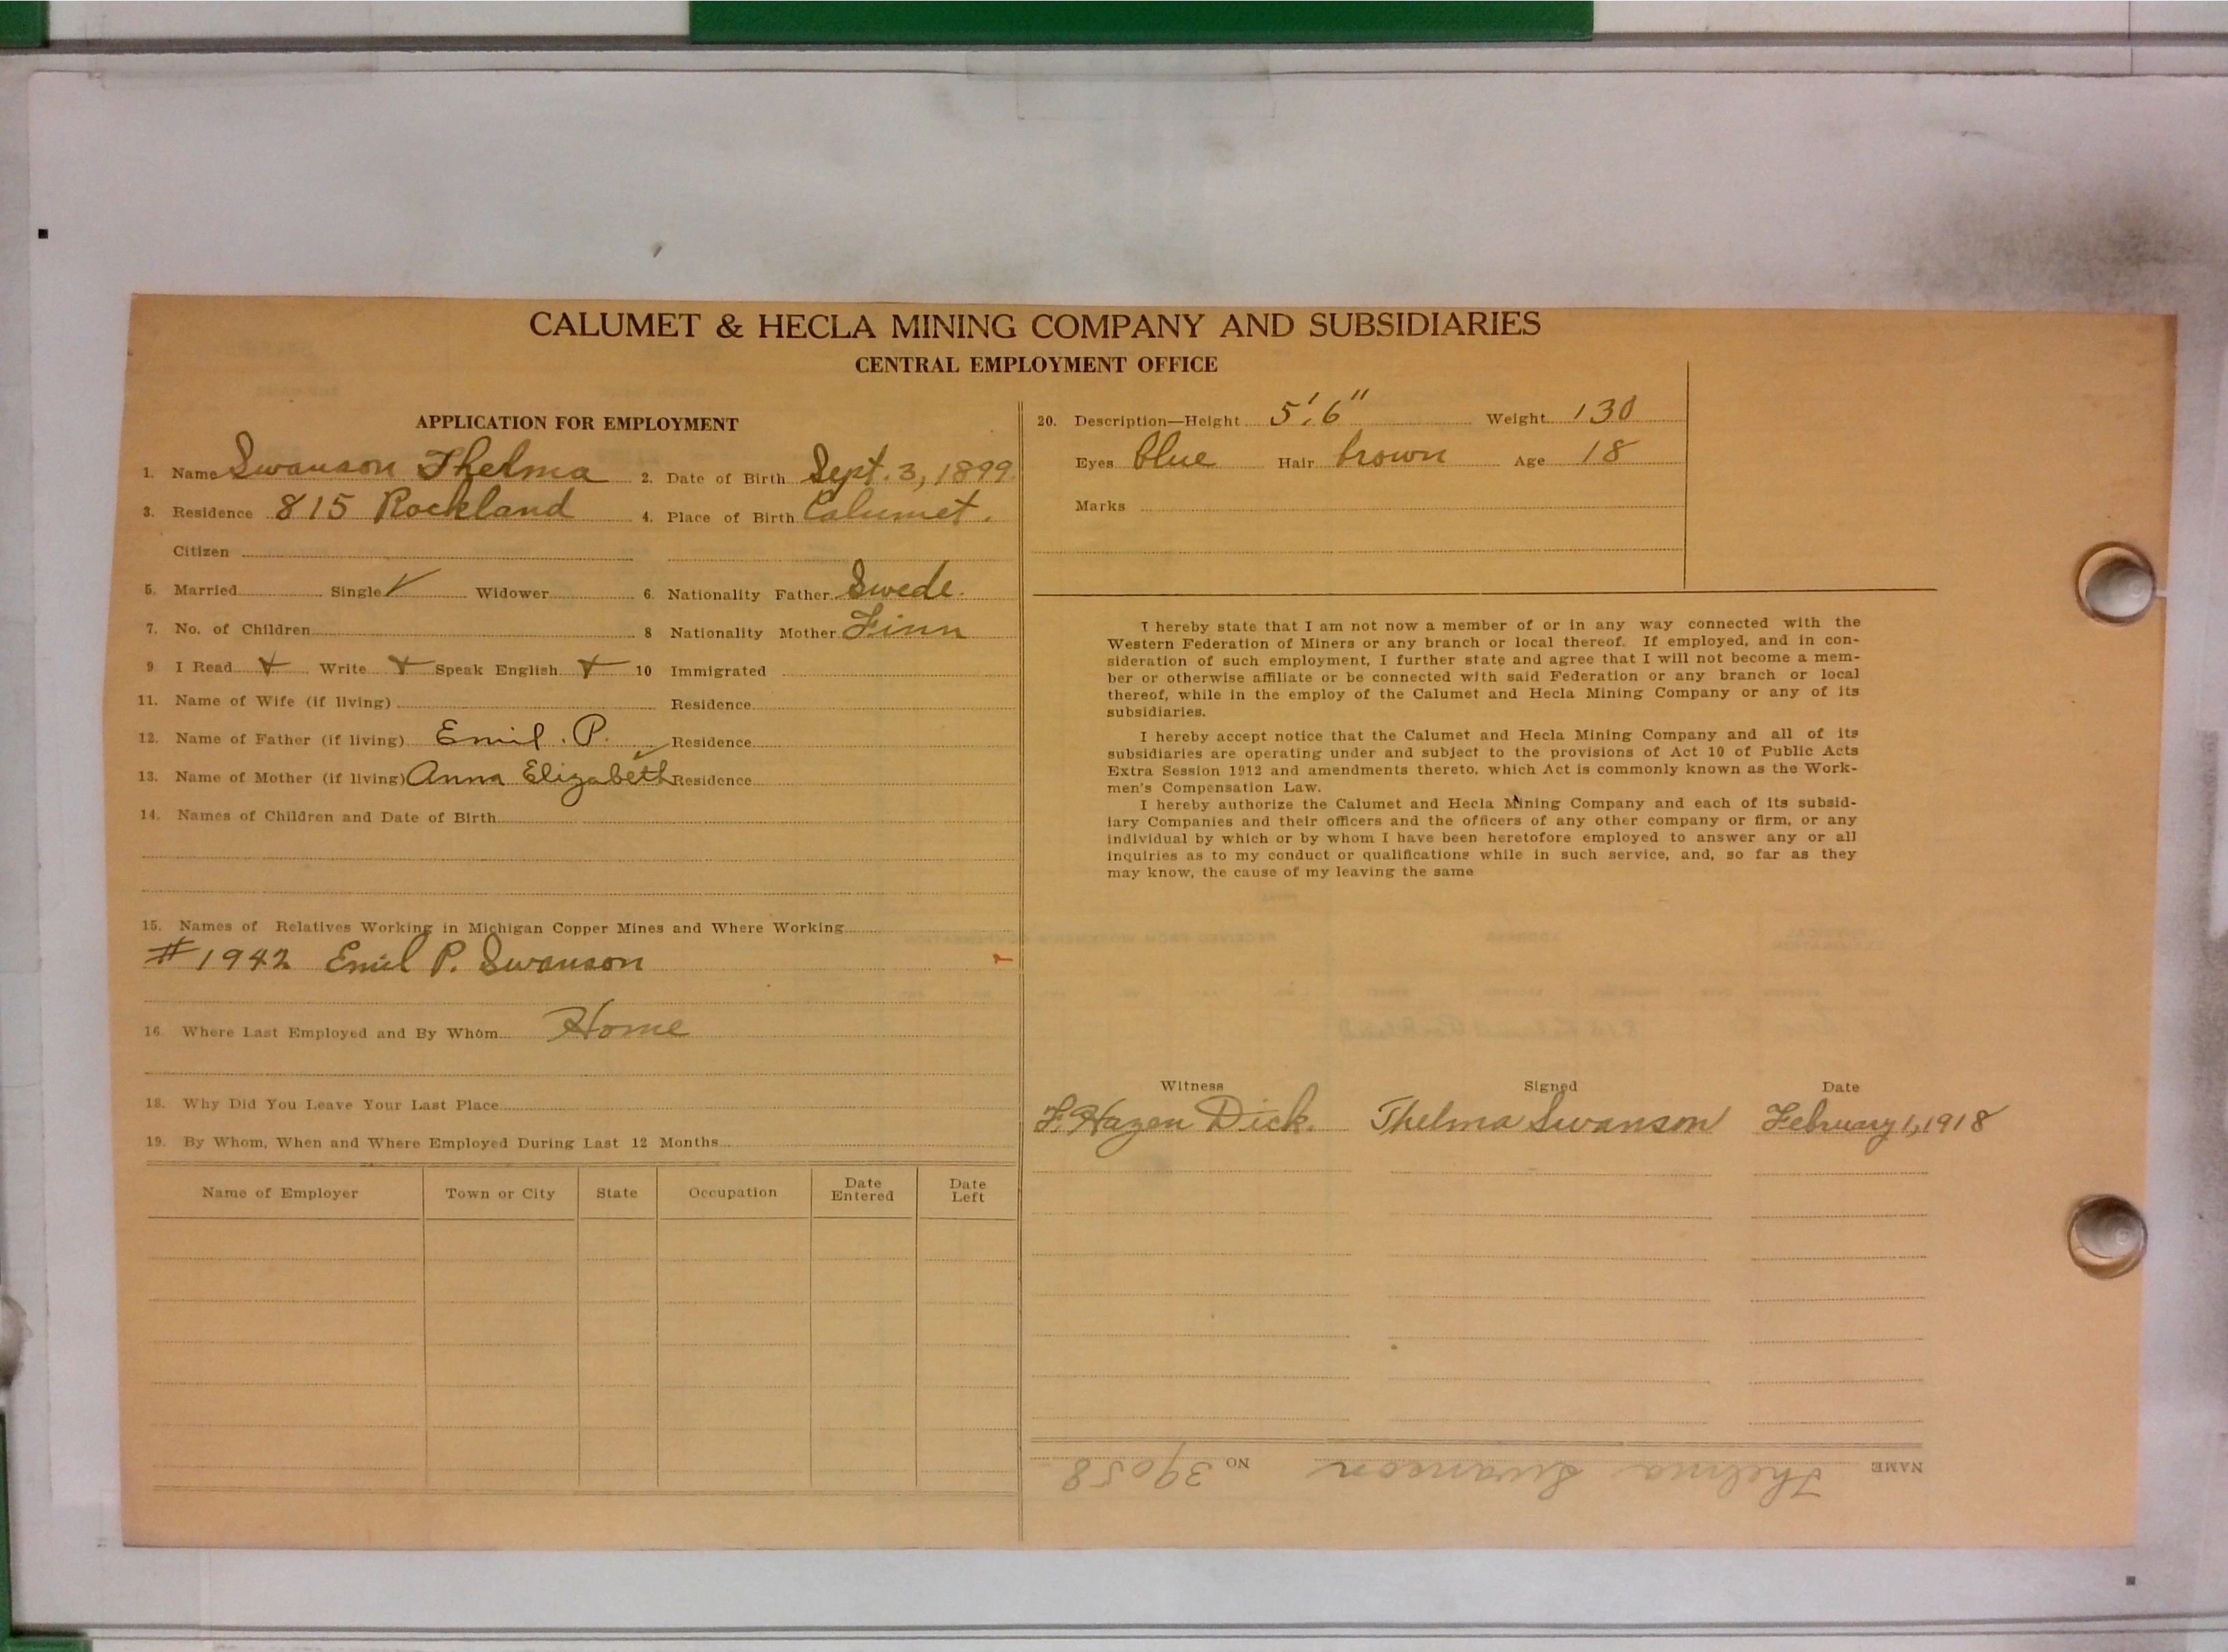 CALUMET & HECLA MINING COMPANY AND SUBSIDIARIES
CENTRAL EMPLOYMENT OFFICE
APPLICATION FOR EMPLOYMENT
1. Name Swanson Thelma 2. Date of Birth Sept. 3, 1899
3. Residence 815 Rockland 4. Place of Birth Calumet.
Citizen
5. Married Single ✓ Widower 6. Nationality Father Swede.
7. No. of Children 8 Nationality Mother Finn
9 I Read + Write + Speak English + 10 Immigrated
11. Name of Wife (if living) Residence
12. Name of Father (if living) Emil. P. Residence
13. Name of Mother (if living) Anna Elizabeth Residence
14. Names of Children and Date of Birth
15. Names of Relatives Working in Michigan Copper Mines and Where Working
#1942 Emil P. Swanson
16. Where Last Employed and By Whom Home
18. Why Did You Leave Your Last Place
19. By Whom, When and Where Employed During Last 12 Months
Name of Employer Town or City State Occupation Date Entered Date Left
20. Description—Height 5'.6" Weight 130
Eyes blue Hair brown Age 18
Marks
I hereby state that I am not now a member of or in any way connected with the
Western Federation of Miners or any branch or local thereof. If employed, and in con-
sideration of such employment, I further state and agree that I will not become a mem-
ber or otherwise affiliate or be connected with said Federation or any branch or local
thereof, while in the employ of the Calumet and Hecla Mining Company or any of its
subsidiaries.
I hereby accept notice that the Calumet and Hecla Mining Company and all of its
subsidiaries are operating under and subject to the provisions of Act 10 of Public Acts
Extra Session 1912 and amendments thereto, which Act is commonly known as the Work-
men's Compensation Law.
I hereby authorize the Calumet and Hecla Mining Company and each of its subsid-
iary Companies and their officers and the officers of any other company or firm, or any
individual by which or by whom I have been heretofore employed to answer any or all
inquiries as to my conduct or qualifications while in such service, and, so far as they
may know, the cause of my leaving the same
Witness Signed Date
F. Hazen Dick. Thelma Swanson February 1, 1918
NAME Thelma Swanson NO 39058